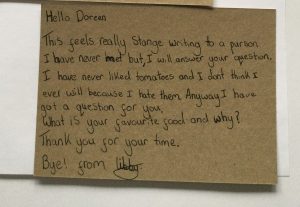 Hello Doreen
This feels really Stange writing to a purson
I have never met but, I will answer your question.
I have never liked tomatoes and I dont think I
ever will because I hate them. Anyway I have
got a question for you.
What is your favourite food and why?
Thank you for your time.
Bye! from libby